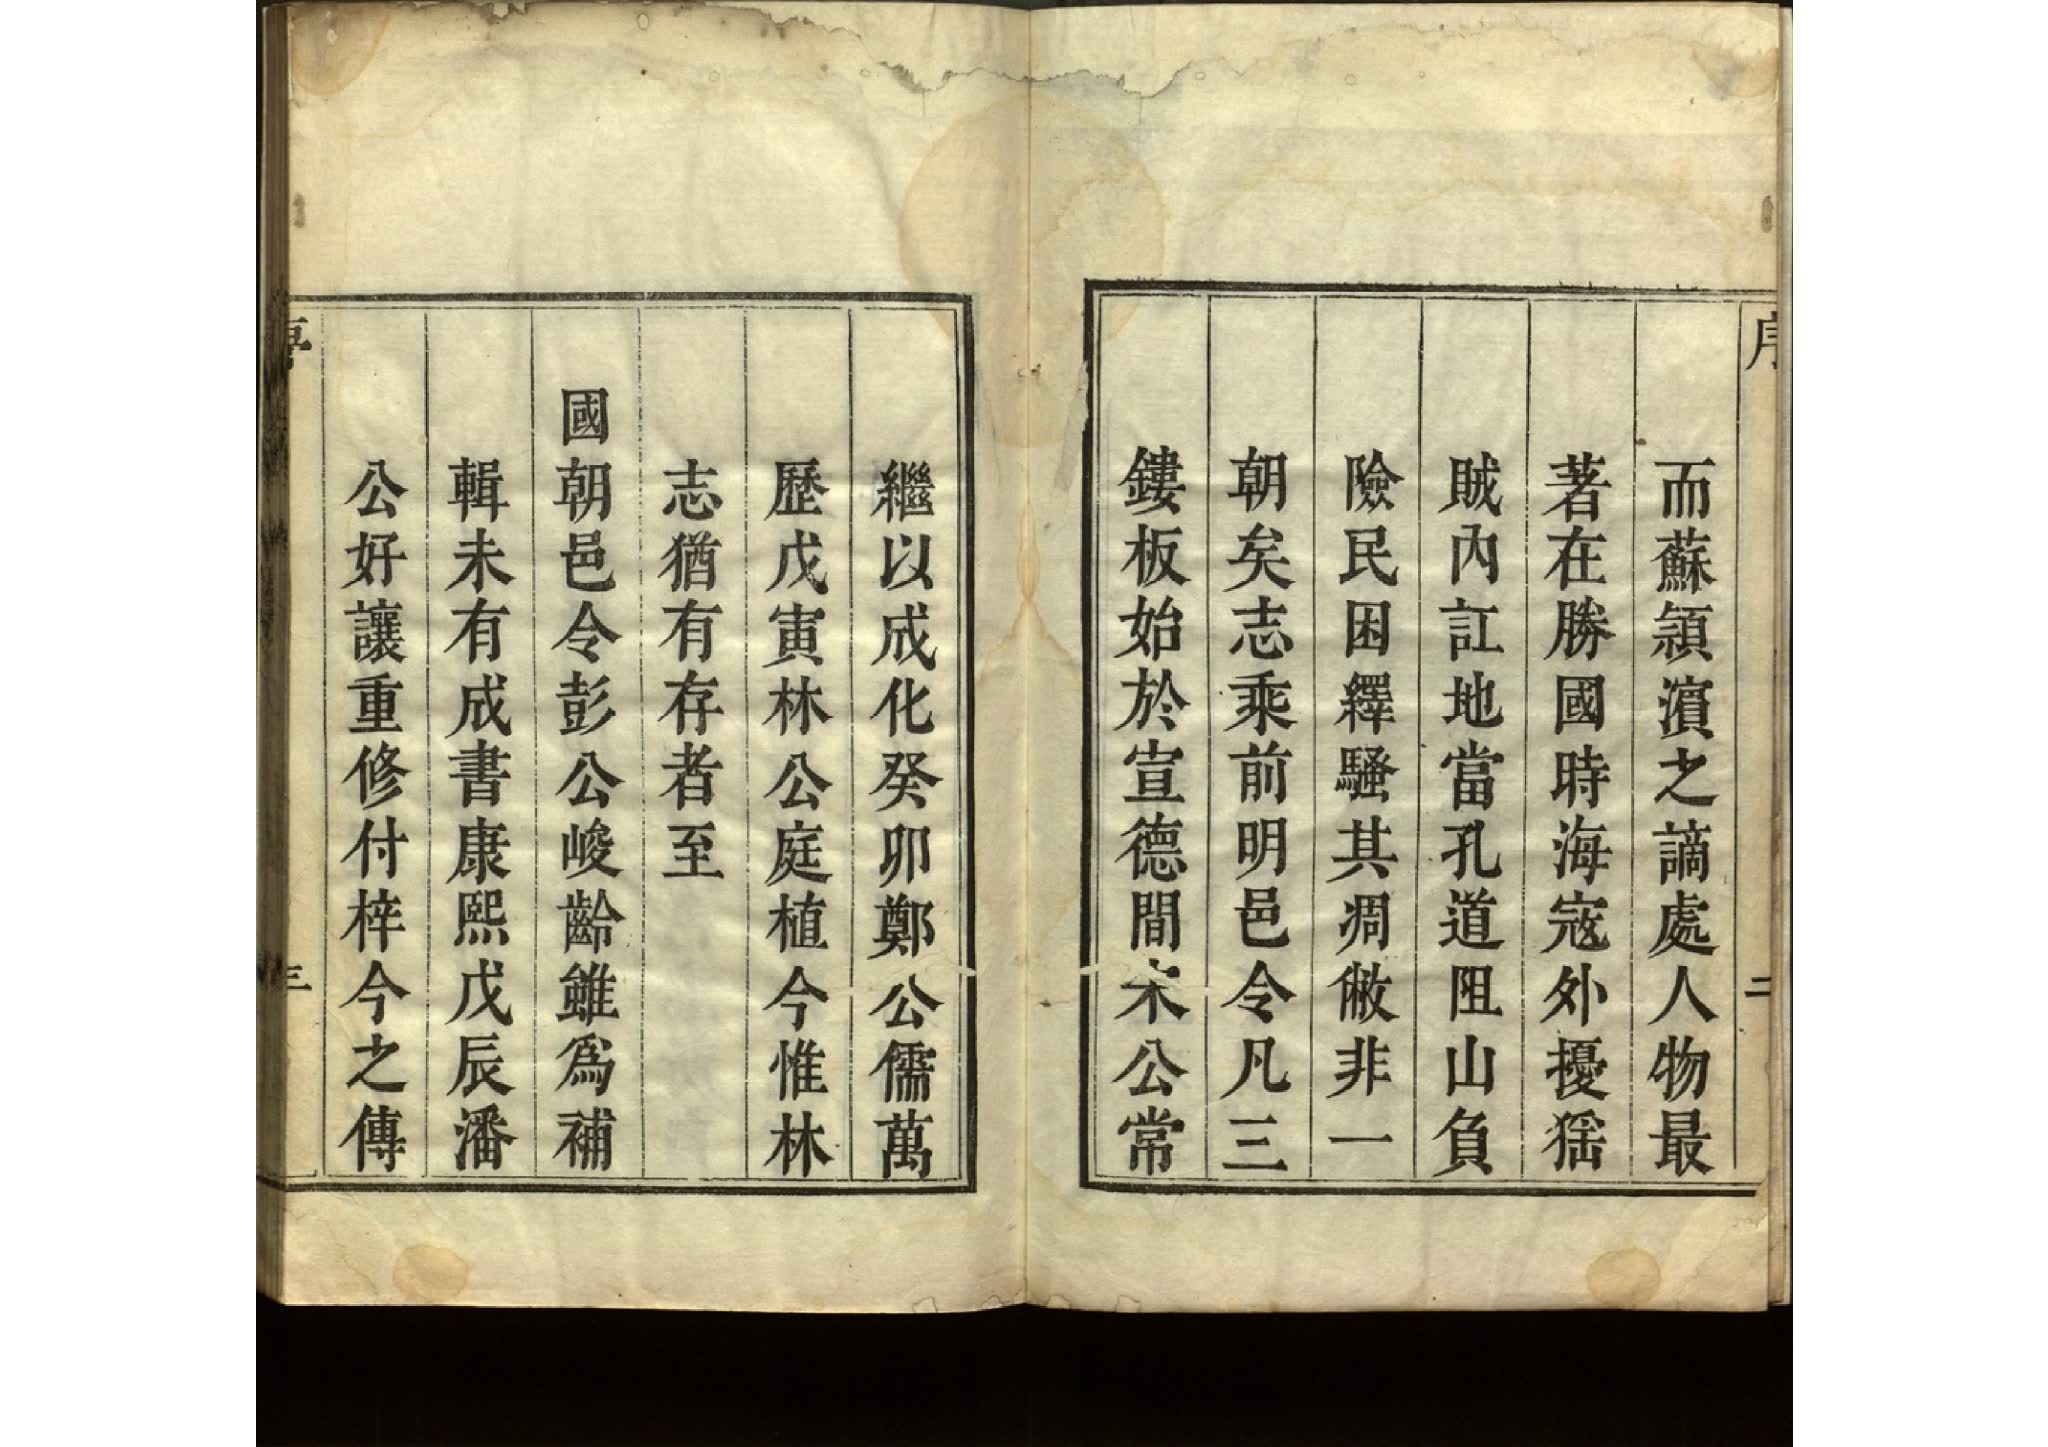 序
二
而蘇潁濵之謫處人物最
著在勝國時海寇外擾猺
賊內訌地當孔道阻山負
險民困繹騷其凋敝非一
朝矣志乘前明邑令凡三
鏤板始於宣德間宋公常
繼以成化癸卯鄭公儒萬
歷戊寅林公庭植今惟林
志猶有存者至
國朝邑令彭公峻齡雖爲補
輯未有成書康熙戊辰潘
公好讓重修付梓今之傳
序
三